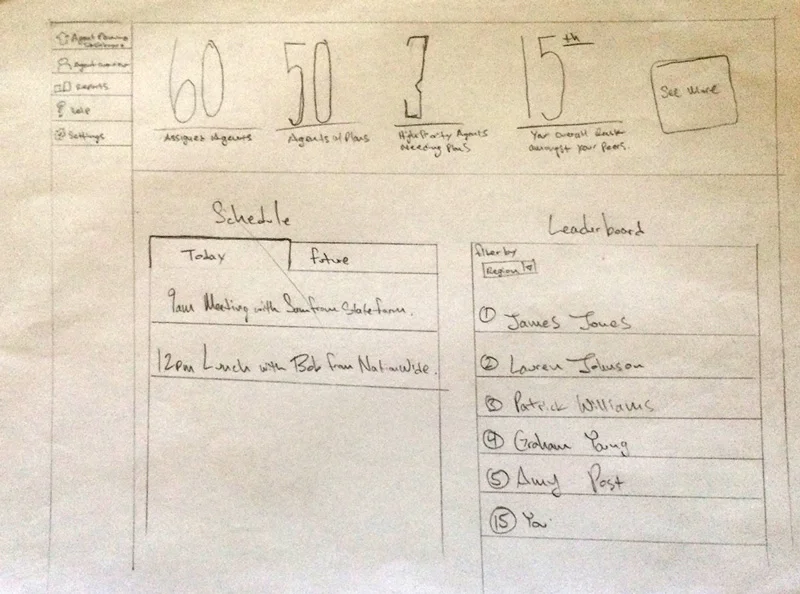 Agent Planning
Dashboard
Agent overview
Reports
Help
Settings
60
Assigned Agents
50
Agents in Plans
3
High Priority Agents
Needing Plans
15th
Your overall Rank
amongst Your Peers.
See More
Schedule
Today
Future
9am Meeting with Sam from Statefarm.
12pm Lunch with Bob from NationWide.
Leaderboard
filter by
Region
1 James Jones
2 Lauren Johnson
3 Patrick Williams
4 Graham Young
5 Amy Post
15 You